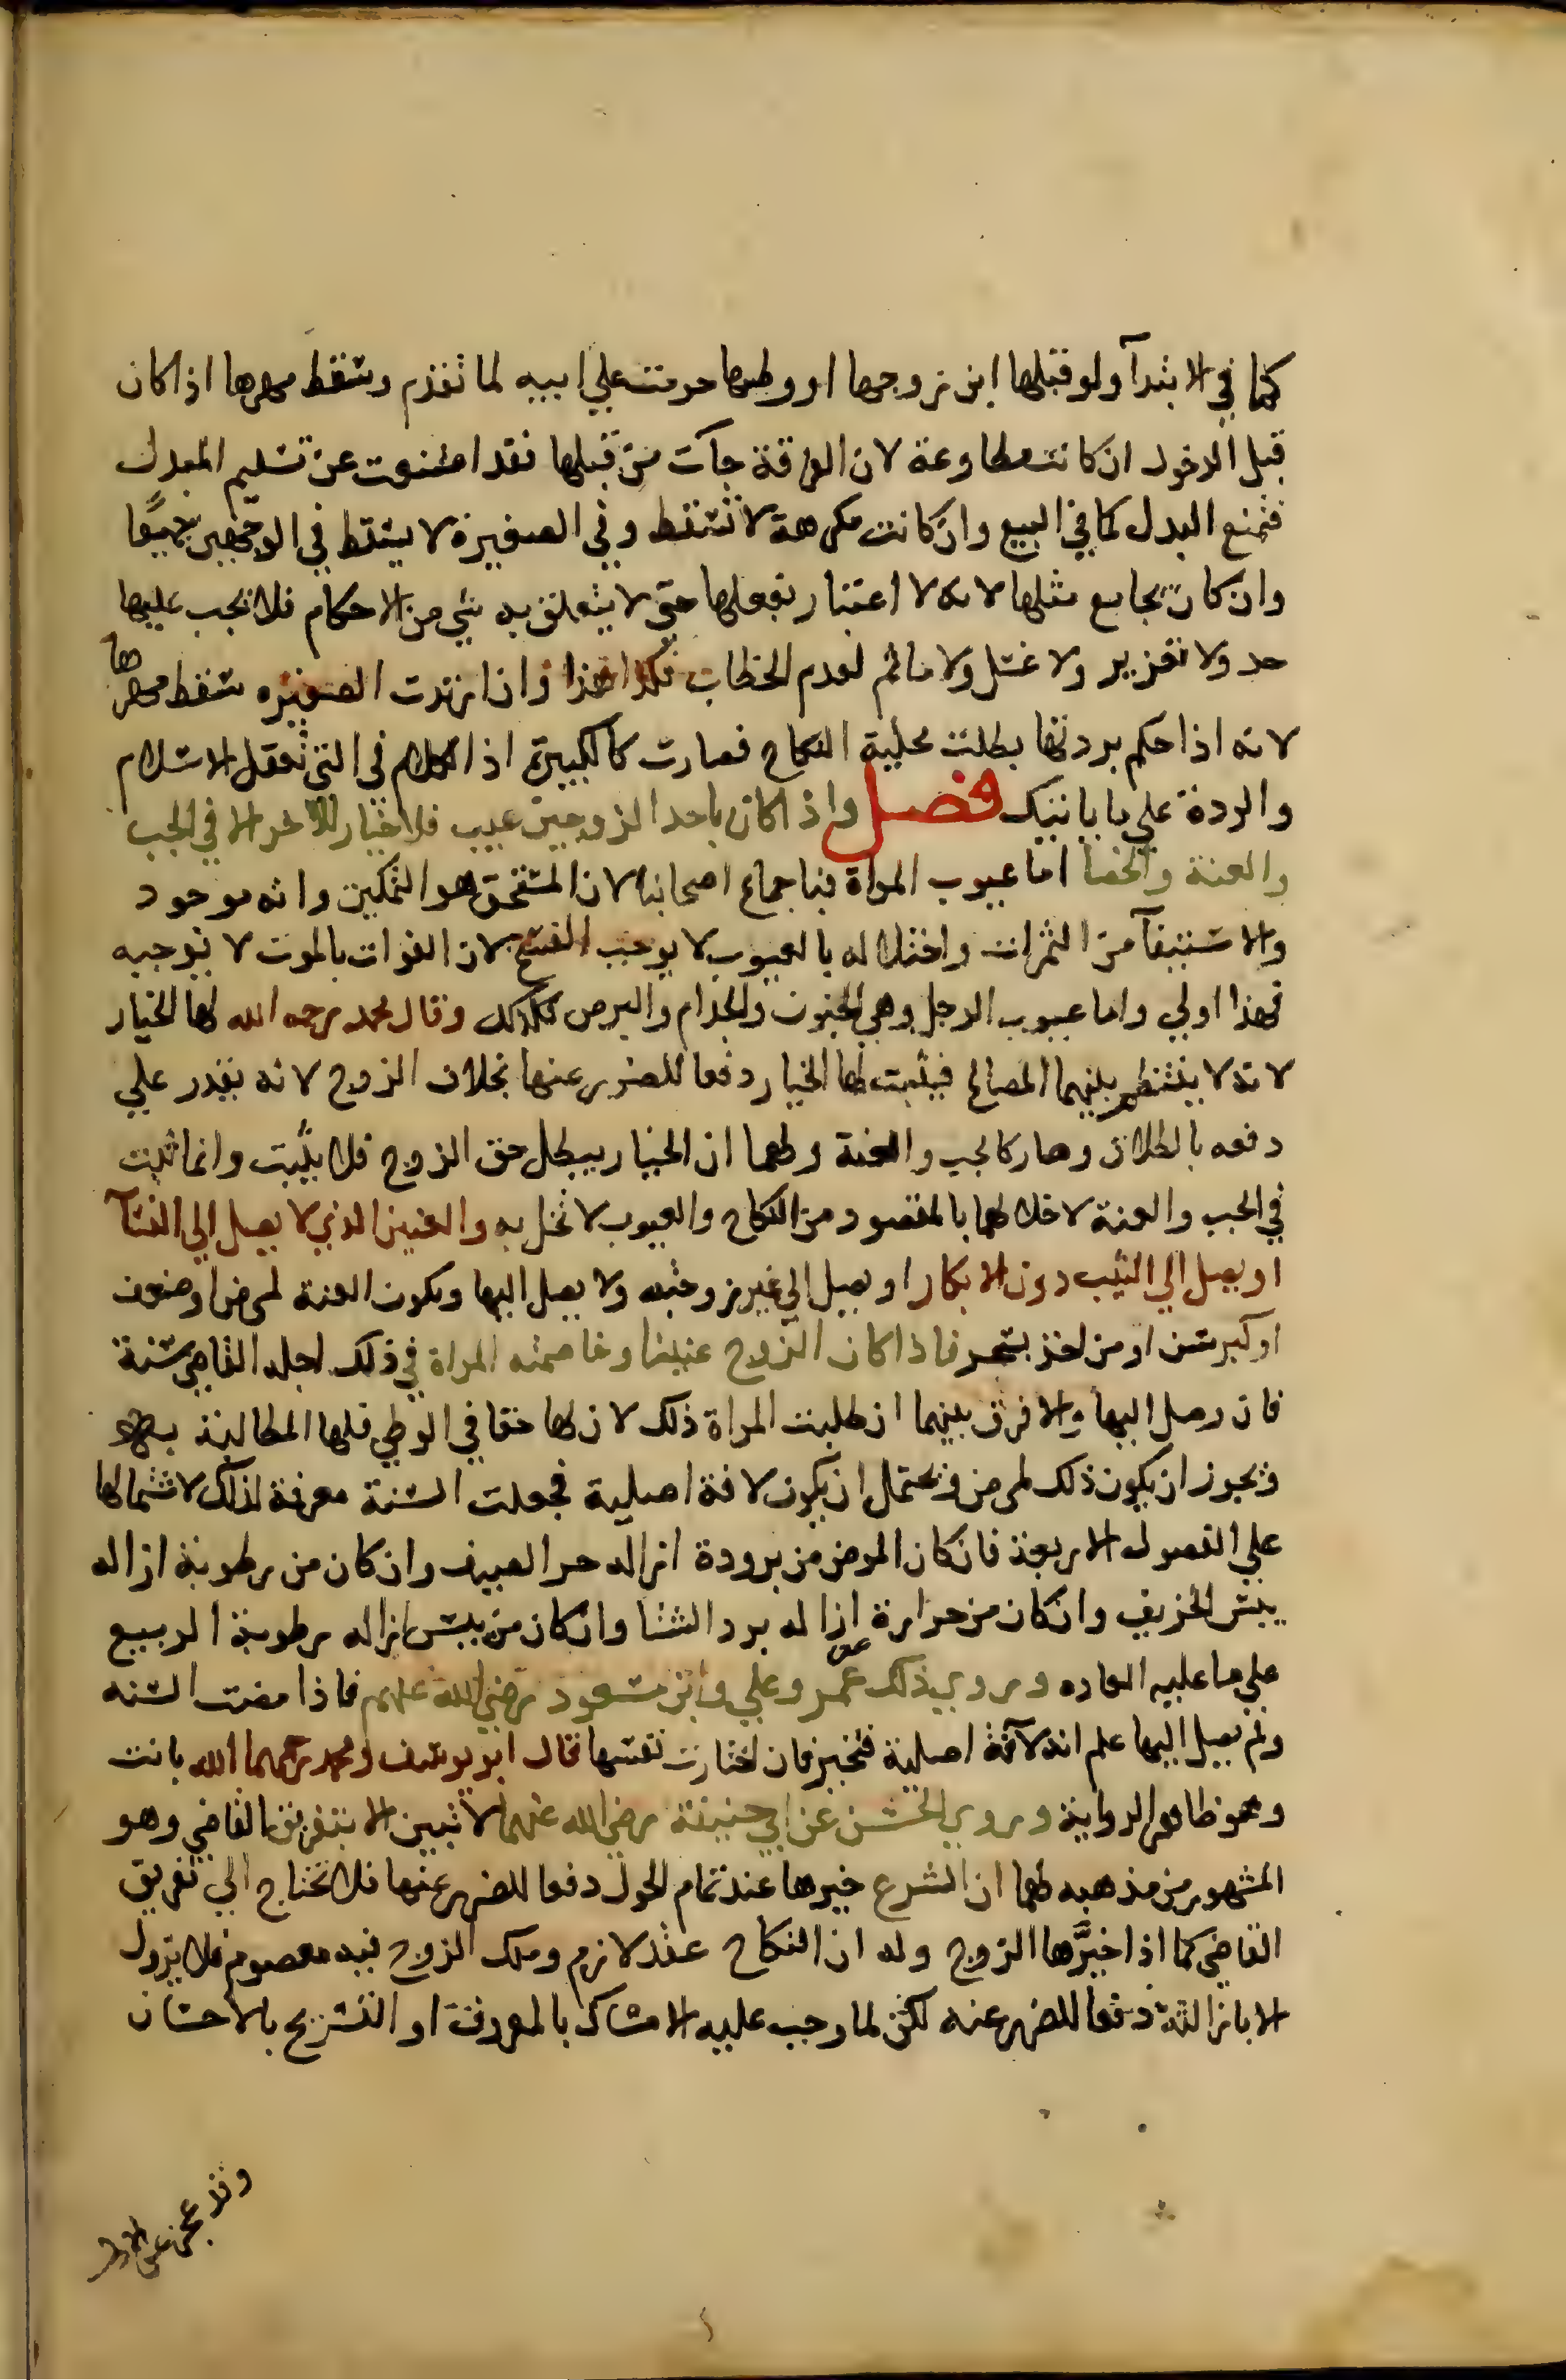 كما في الابتدآ ولو قبلها ابن زوجها او وطيها حرمت علي ابيه لما تقدم وسقط مهرها اذا كان
قبل الدخول ان كانت مطاوعة لان الفرقة جآت من قبلها فقد امتنعت عن تسليم المبدل
فتمنع البدل كما في البيع وان كانت مكرهة لا تسقط وفي الصغيرة لا يسقط في الوجهين جميعًا
وان كان تجامع مثلها لانه لا اعتبار بفعلها حتي لا يتعلق به شي من الاحكام فلا يجب عليها
حد ولا تعزير ولا غسل ولا ماثم لعدم الخطاب فكذا هذا وان ارتدت الصغيره سقط مهرها
لانه اذا حكم بردتها بطلت محلية النكاح فصارت كالكبيرة اذ الكلام في التي تعقل الاسلام
والردة علي ما ياتيك فصل واذا كان باحد الزوجين عيب فلا خيار للآخر الا في الجب
والعنة والخصا اما عيوب المراة فباجماع اصحابنا لان المستحق هو التمكين وانه موجود
والاستيفآ من الثمرات واختلاله بالعيوب لا يوجب الفسخ لان الفوات بالموت لا يوجبه
فهذا اولي واما عيوب الرجل وهي الجنون والجذام والبرص فكذلك وقال محمد رحمه الله لها الخيار
لانه لا ينتظم بينهما المصالح فيثبت لها الخيار دفعا للضرر عنها بخلاف الزوج لانه يقدر علي
دفعه بالطلاق وصار كالجب والعنة ولهما ان الخيار يبطل حق الزوج فلا يثبت وانما ثبت
في الجب والعنة لاخلالهما بالمقصود من النكاح والعيوب لا تخل به والعنين الذي لا يصل الي النسآ
او يصل الي الثيب دون الابكار او يصل الي غير زوجته ولا يصل اليها ويكون العنة لمرض او ضعف
او كبر سن او من اخذ بسحر فاذا كان الزوج عنينا وخاصمته المراة في ذلك اجله القاضي سنة
فان وصل اليها والا فرق بينهما ان طلبت المراة ذلك لان لها حقا في الوطي فلها المطالبة به
ويجوز ان يكون ذلك لمرض ويحتمل ان يكون لافة اصلية فجعلت السنة معرفة لذلك لاشتمالها
علي الفصول الاربعة فان كان المرض من برودة ازاله حر الصيف وان كان من رطوبة ازاله
يبس الخريف وان كان من حرارة ازاله برد الشتا وان كان من يبس ازاله رطوبة الربيع
علي ما عليه العاده وروي ذلك عن عمر وعلي وابن مسعود رضي الله عنهم فاذا مضت السنه
ولم يصل اليها علم انه لآفة اصلية فتخير فان اختارت نفسها قال ابو يوسف ومحمد رحمهما الله بانت
وهو ظاهر الرواية وروي الحسن عن ابي حنيفة رضي الله عنهما لا تبين الا بتفريق القاضي وهو
المشهور من مذهبه لهما ان الشرع خيرها عند تمام الحول دفعا للضرر عنها فلا تحتاج الي تفريق
القاضي كما اذا خيَّرها الزوج وله ان النكاح عقد لازم وملك الزوج فيه معصوم فلا يزول
الا بازالته دفعا للضرر عنه لكن لما وجب عليه الامساك بالمعروف او التسريح بالاحسان
وقد عجز عن الاول